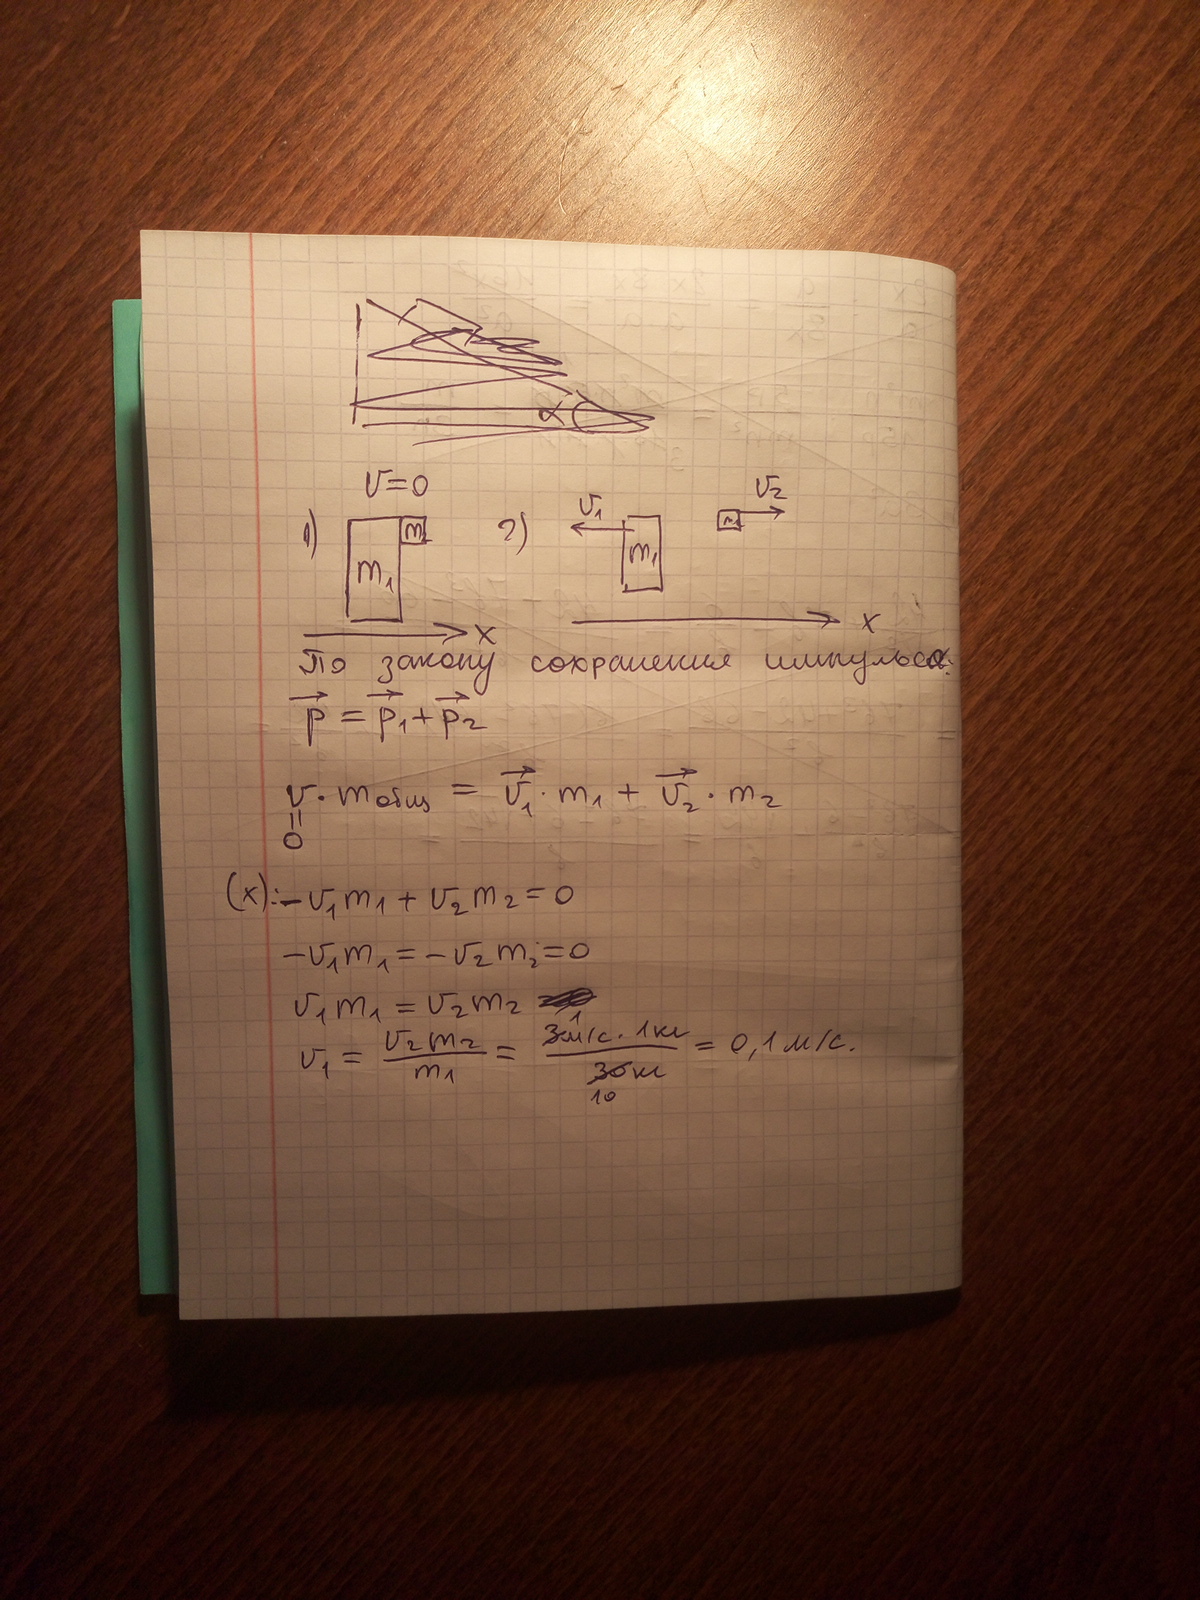 α
v=0
1) m₁ m
2) v₁ m₁ m v₂
x
x
По закону сохранения импульса:
p⃗ = p⃗₁ + p⃗₂
v · mобщ = v⃗₁ · m₁ + v⃗₂ · m₂
=
0
(x): -v₁m₁ + v₂m₂ = 0
-v₁m₁ = -v₂m₂ = 0
v₁m₁ = v₂m₂
v₁ = v₂m₂/m₁ = 3м/с · 1кг/30кг = 0,1 м/с.
1
10